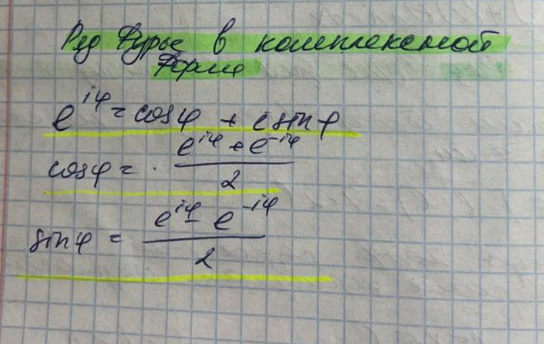 Ряд Фурье в комплексной
форме
e^{iφ} = cosφ + i sinφ
cosφ = \frac{e^{iφ} + e^{-iφ}}{2}
sinφ = \frac{e^{iφ} - e^{-iφ}}{2}